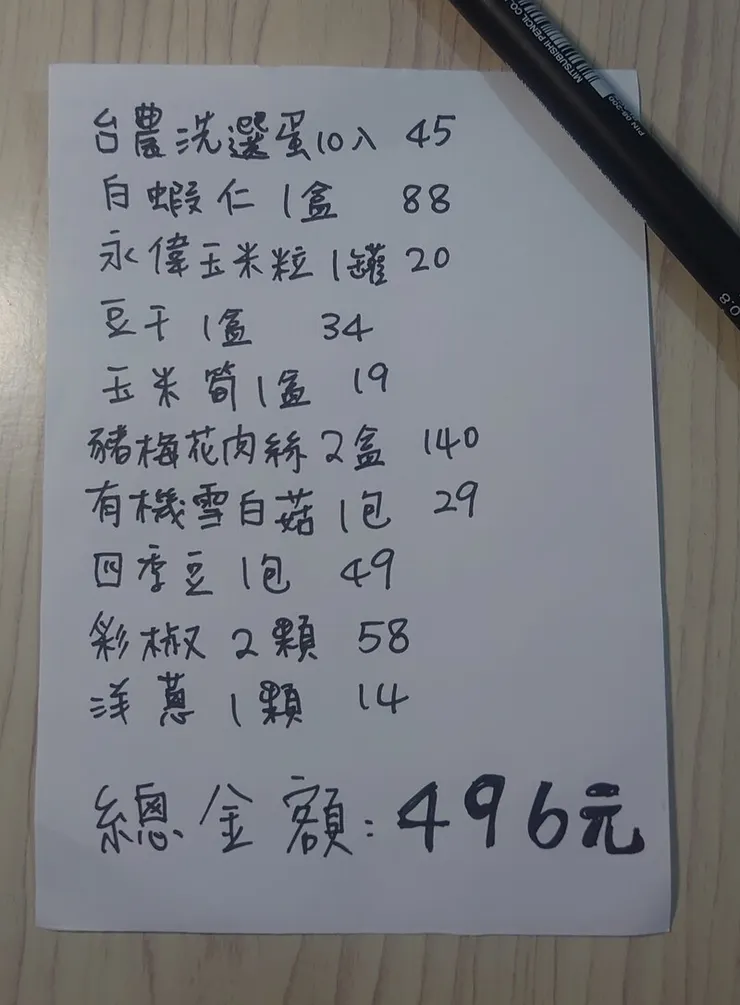 台農洗選蛋10入 45
白蝦仁 1盒 88
永偉玉米粒 1罐 20
豆干 1盒 34
玉米筍 1盒 19
豬梅花肉絲 2盒 140
有機雪白菇 1包 29
四季豆 1包 49
彩椒 2顆 58
洋蔥 1顆 14
總金額：496元
MITSUBISHI PENCIL CO.
PIN 08-200
0.8